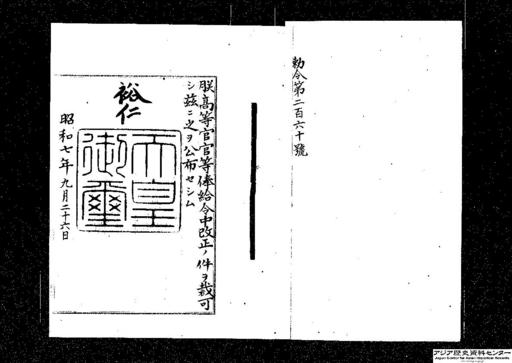 勅令第二百六十號
朕高等官官等俸給令中改正ノ件ヲ裁可
シ茲ニ之ヲ公布セシム
裕仁
天皇御璽
昭和七年九月二十六日
アジア歴史資料センター
Japan Center for Asian Historical Records